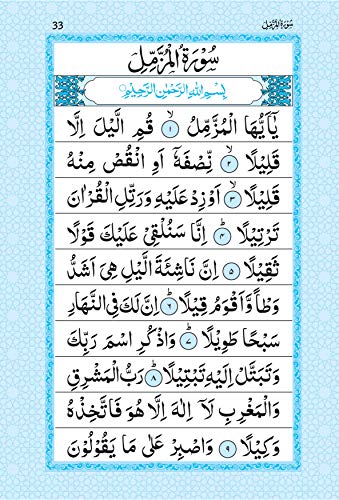 33
سُوْرَةُ الْمُزَّمِّل
سُوْرَةُ الْمُزَّمِّلِ
بِسْمِ اللهِ الرَّحْمٰنِ الرَّحِيْمِ
يٰۤاَيُّهَا الْمُزَّمِّلُ ۙ﴿۱﴾ قُمِ الَّيْلَ اِلَّا
قَلِيْلًا ۙ﴿۲﴾ نِّصْفَهٗۤ اَوِ انْقُصْ مِنْهُ
قَلِيْلًا ۙ﴿۳﴾ اَوْ زِدْ عَلَيْهِ وَرَتِّلِ الْقُرْاٰنَ
تَرْتِيْلًا ؕ﴿۴﴾ اِنَّا سَنُلْقِيْ عَلَيْكَ قَوْلًا
ثَقِيْلًا ﴿۵﴾ اِنَّ نَاشِئَةَ الَّيْلِ هِيَ اَشَدُّ
وَطْاً وَّاَقْوَمُ قِيْلًا ؕ﴿۶﴾ اِنَّ لَكَ فِي النَّهَارِ
سَبْحًا طَوِيْلًا ؕ﴿۷﴾ وَاذْكُرِ اسْمَ رَبِّكَ
وَتَبَتَّلْ اِلَيْهِ تَبْتِيْلًا ؕ﴿۸﴾ رَبُّ الْمَشْرِقِ
وَالْمَغْرِبِ لَاۤ اِلٰهَ اِلَّا هُوَ فَاتَّخِذْهُ
وَكِيْلًا ﴿۹﴾ وَاصْبِرْ عَلٰى مَا يَقُوْلُوْنَ